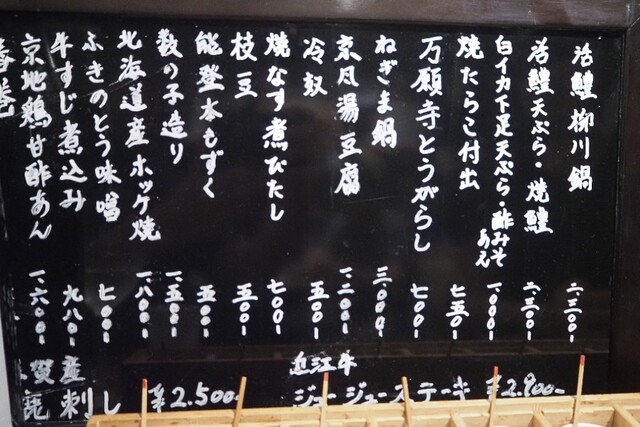 活鱧柳川鍋 二、三〇〇-
活鱧天ぷら・焼鱧 二、三〇〇-
白イカ下足天ぷら・酢みそあえ 一、〇〇〇-
焼たらこ付出 七五〇-
万願寺とうがらし 七〇〇-
ねぎま鍋 三、〇〇〇-
京風湯豆腐 一、二〇〇-
冷奴 五〇〇-
枝豆 五〇〇-
焼なす煮びたし 七〇〇-
能登本もずく 五〇〇-
数の子造り 一、五〇〇-
北海道産ホッケ焼 一、八〇〇-
ふきのとう味噌 七〇〇-
牛すじ煮込み 九八〇-
京地鶏・甘酢あん 一、六〇〇-
近江牛
ジュージューステーキ ¥2.900-
賀産
刺し ¥2.500-